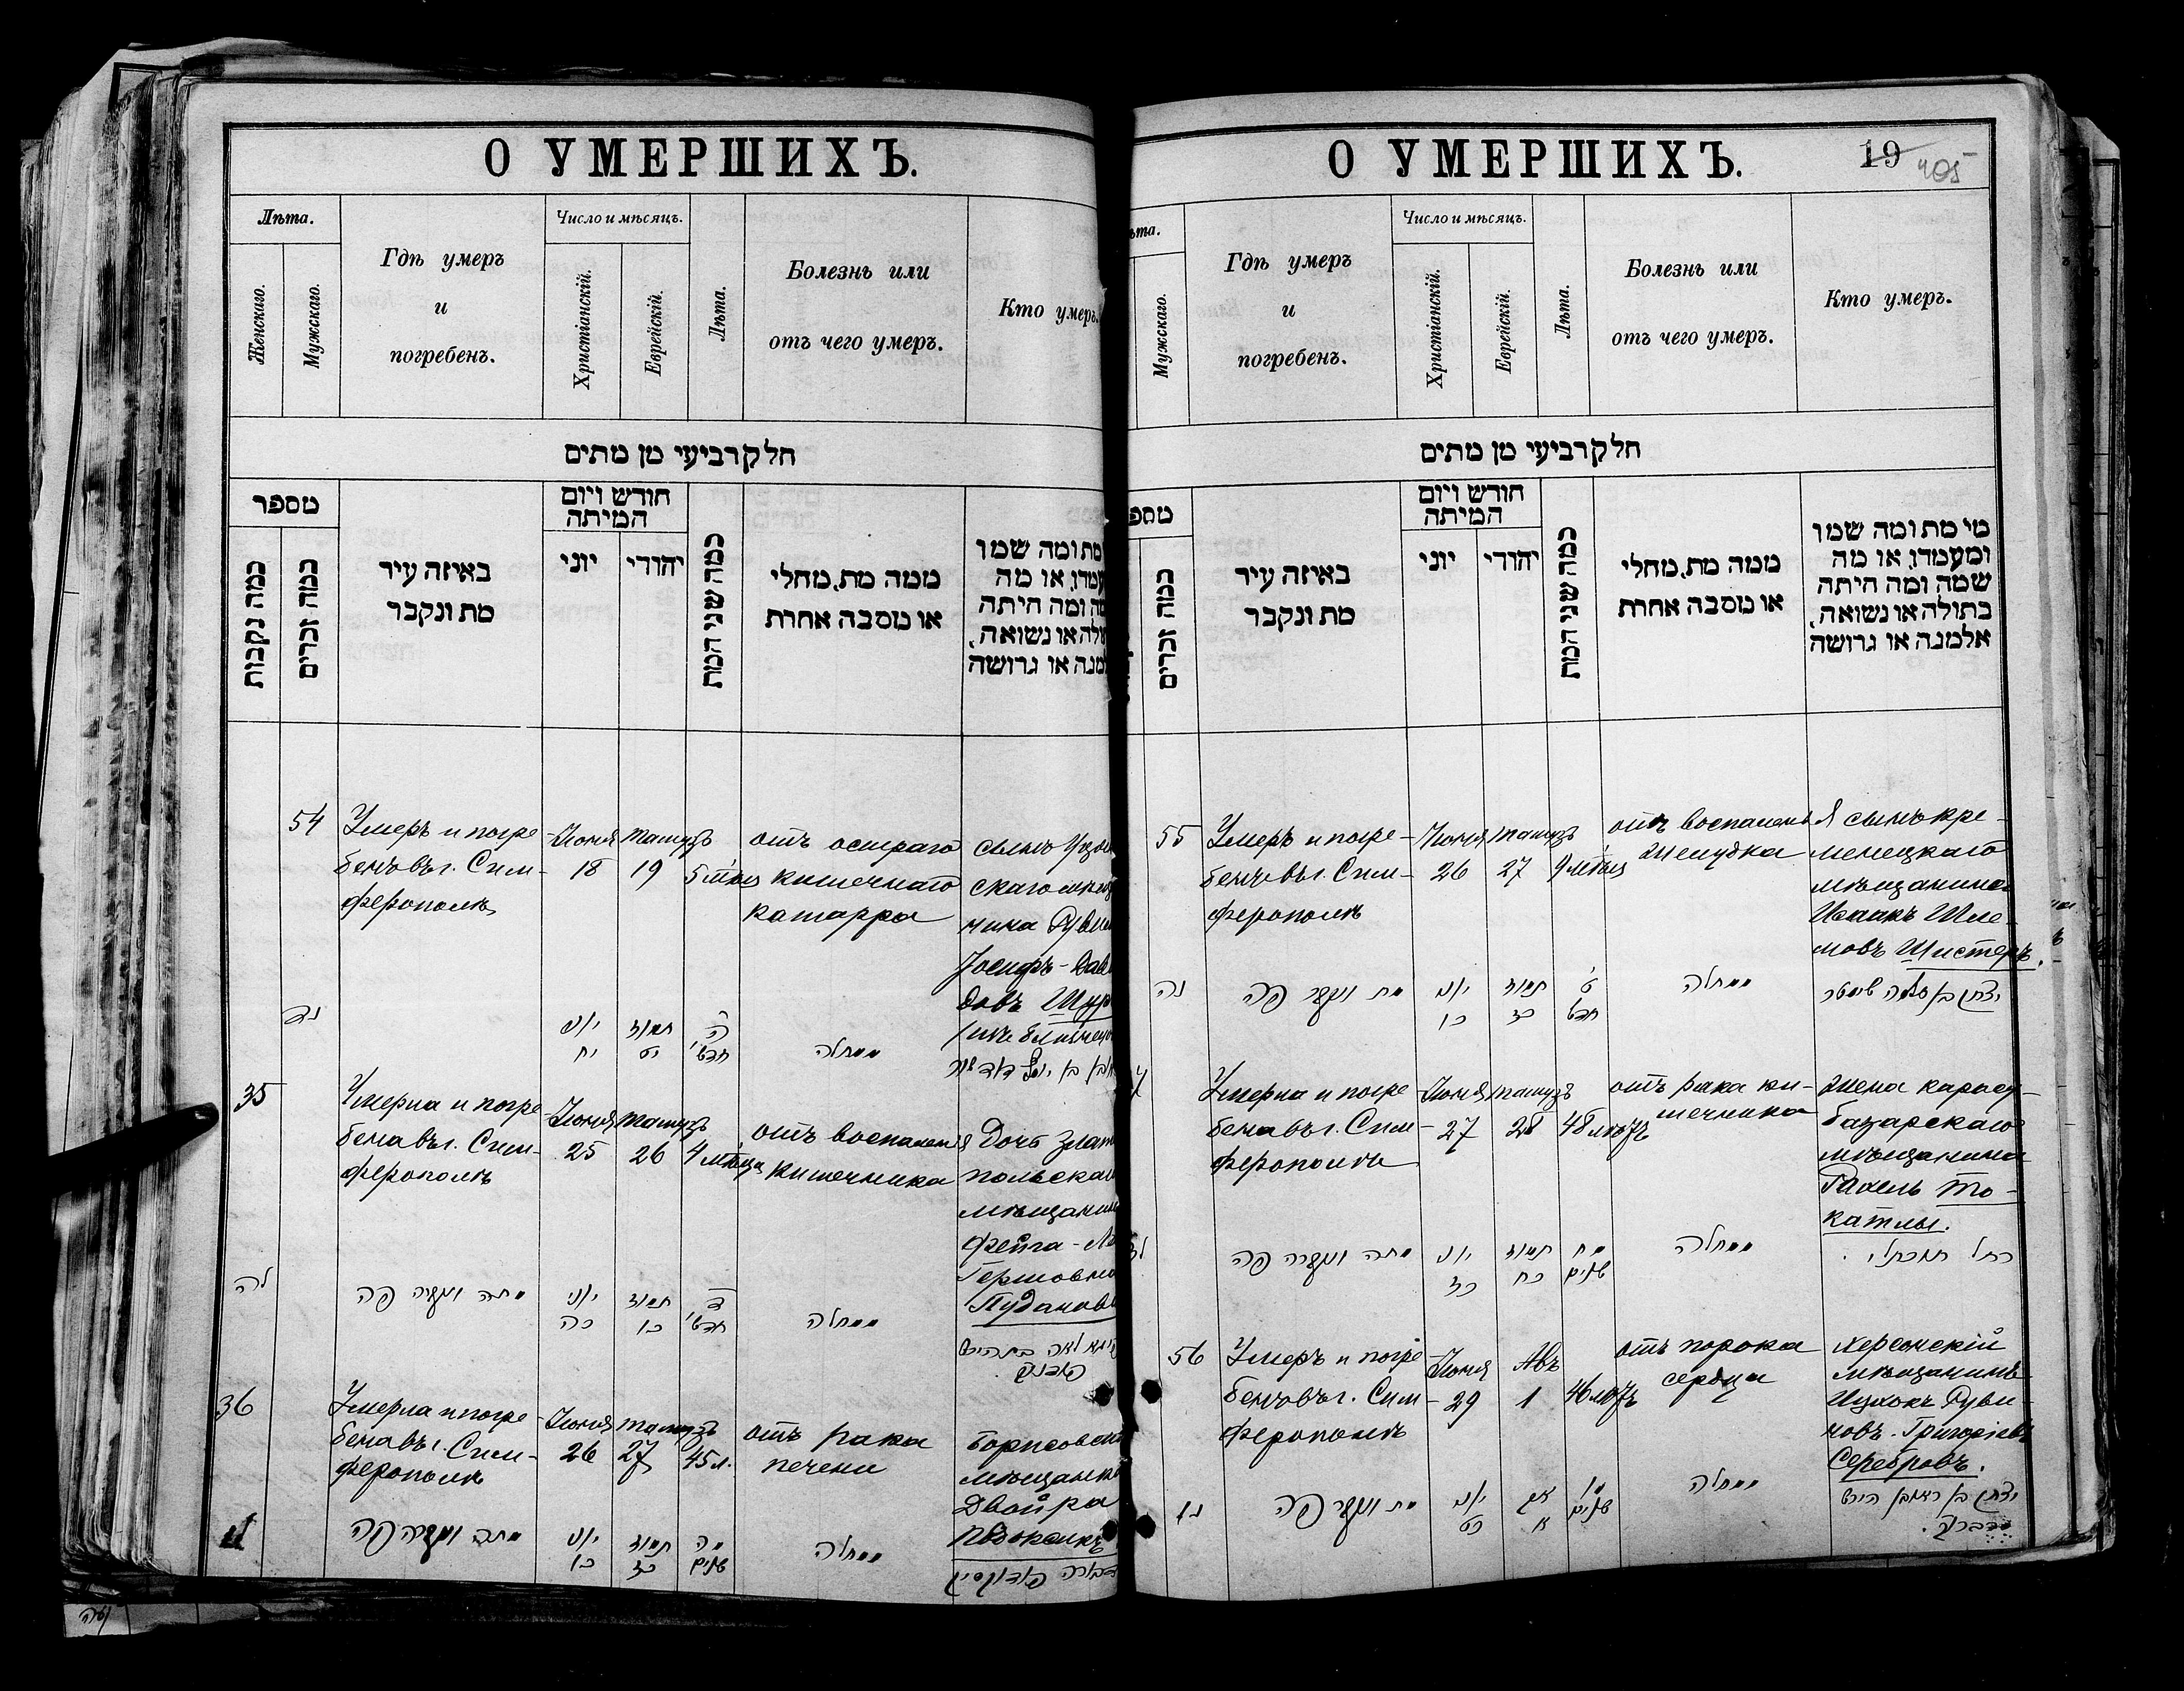 О УМЕРШИХЪ.
Лѣта.
Женскаго.
Мужскаго.
Гдѣ умеръ
и
погребенъ.
Число и мѣсяцъ.
Христіанскій.
Еврейскій.
Лѣта.
Болезнь или
отъ чего умеръ.
Кто умеръ.
חלק רביעי מן מתים
מספר
כמה נקבות
כמה זכרים
באיזה עיר
מת ונקבר
חודש ויום
המיתה
יוני
יהודי
כמה שני המת
ממה מת, מחלי
או מסבה אחרת
מת ומה שמו
או מה
ומה היתה
או נשואה,
או גרושה
54
Умеръ и погре-
бенъ въ г. Сим-
ферополѣ
Іюня
18
Тамузъ
19
5 мѣсяц
отъ остраго
кишечнаго
катарра
сынъ
скаго
нина
Іосифъ-Дав
довъ
נד
יוני
יח
תמוז
יט
ה
חדש'
ממחלה
35
Умерла и погре-
бена въ г. Сим-
ферополѣ
Іюня
25
Тамузъ
26
4 мѣсяца
отъ воспаленія
кишечника
Дочь Злат
польскаго
мѣщанин
Фейга-
Гершовна
Пуданов
לה
מתה ונקברה פה
יוני
כה
תמוז
כו
ד
חדש'
ממחלה
36
Умерла и погре-
бена въ г. Сим-
ферополѣ
Іюня
26
Тамузъ
27
45 л.
отъ рака
печени
Борисовск
мѣщанк
Двойра
מתה ונקברה פה
יוני
כו
תמוז
כז
מה
שנים
ממחלה
О УМЕРШИХЪ.
19
405
ѣта.
Мужскаго.
Гдѣ умеръ
и
погребенъ.
Число и мѣсяцъ.
Христіанскій.
Еврейскій.
Лѣта.
Болезнь или
отъ чего умеръ.
Кто умеръ.
חלק רביעי מן מתים
מספ
כמה זכרים
באיזה עיר
מת ונקבר
חודש ויום
המיתה
יוני
יהודי
כמה שני המת
ממה מת, מחלי
או מסבה אחרת
מי מת ומה שמו
ומעמדו, או מה
שמה ומה היתה
בתולה או נשואה,
אלמנה או גרושה
55
Умеръ и погре-
бенъ въ г. Сим-
ферополѣ
Іюня
26
Тамузъ
27
9 мѣсяц
отъ воспаленія
желудка
сынъ кре-
менецкаго
мѣщанина
Исаакъ Шле-
мовъ Шистеръ.
נה
מת ונקבר פה
יוני
כו
תמוז
כז
ט'
חדש'
ממחלה
יצחק בן שלמה שיסטר
Умерла и погре-
бена въ г. Сим-
ферополѣ
Іюня
27
Тамузъ
28
48 лѣтъ
отъ рака ки-
шечника
жена карасу-
базарскаго
мѣщанина
Рахель То-
катлы.
מתה ונקברה פה
יוני
כז
תמוז
כח
מח
שנים
ממחלה
רחל
56
Умеръ и погре-
бенъ въ г. Сим-
ферополѣ
Іюня
29
Авъ
1
46 лѣтъ
отъ порока
сердца
Херсонскій
мѣщанинъ
Ицхокъ Руви-
новъ-Григорьевъ
Серебровъ.
נו
מת ונקבר פה
יוני
כט
אב
א
מו
שנים
ממחלה
יצחק בן ראובן הירש